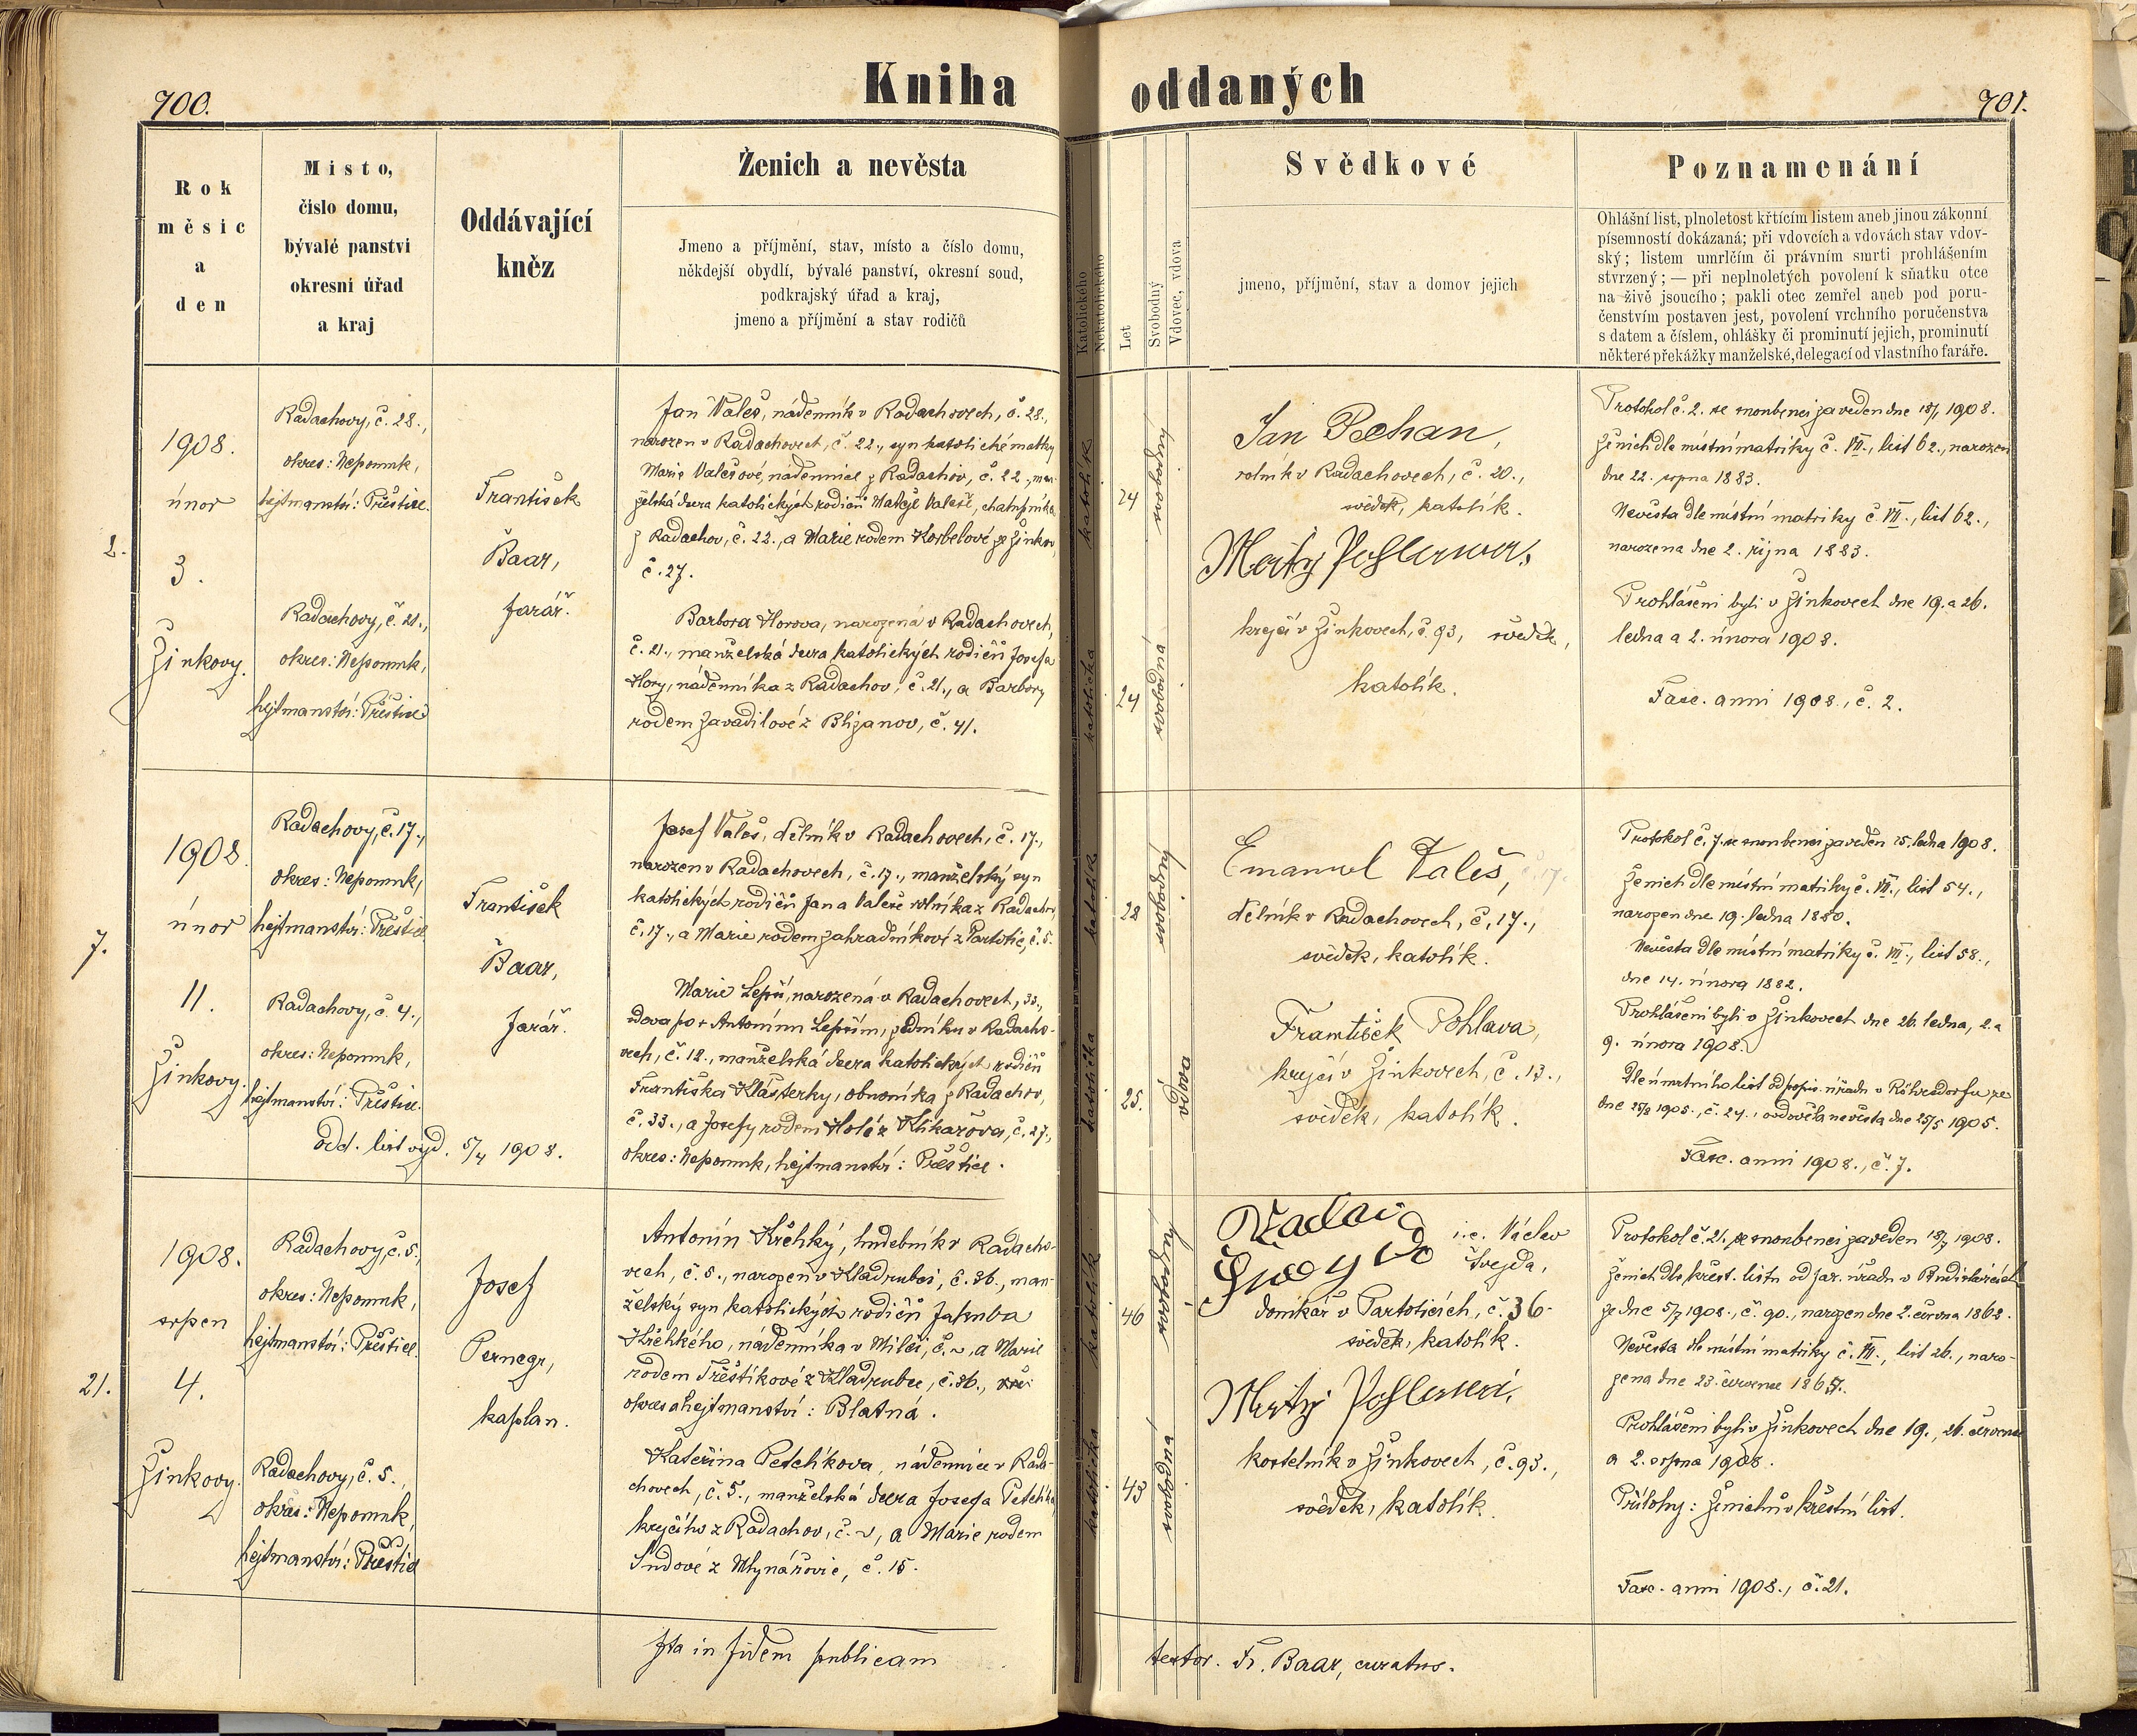 Kniha oddaných
700.
701.
Rok
měsic
a
den
Misto,
čislo domu,
bývalé panstvi
okresni úřad
a kraj
Oddávající
kněz
Ženich a nevěsta
Jmeno a příjmění, stav, místo a číslo domu,
někdejší obydlí, bývalé panství, okresní soud,
podkrajský úřad a kraj,
jmeno a příjmění a stav rodičů
Katolického
Nekatolického
Let
Svobodný
Vdovec, vdova
Svědkové
jmeno, příjmění, stav a domov jejich
Poznamenání
Ohlášní list, plnoletost křtícím listem aneb jinou zákonní
písemností dokázaná; při vdovcích a vdovách stav vdov-
ský; listem umrlčím či právním smrti prohlášením
stvrzený; — při neplnoletých povolení k sňatku otce
na živě jsoucího; pakli otec zemřel aneb pod poru-
čenstvím postaven jest, povolení vrchního poručenstva
s datem a číslem, ohlášky či prominutí jejich, prominutí
některé překážky manželské, delegací od vlastního faráře.
2.
1908.
únor
3.
Žinkovy.
Radachovy, č. 28.,
okres: Nepomuk,
hejtmanství: Přeštice.
Radachovy, č. 21.,
okres: Nepomuk,
hejtmanství: Přeštice
František
Baar,
farář.
Jan Valeš, nádenník v Radachovech, č. 28.,
narozen v Radachovech, č. 22., syn katolické matky
Marie Valešové, nádennice z Radachov, č. 22., man-
želská dcera katolických rodičů Matěje Valeše, chalupníka
z Radachov, č. 22., a Marie rodem Korbelové ze Žinkov,
č. 27.
Barbora Horova, narozená v Radachovech,
č. 21., manželská dcera katolických rodičů Josefa
Hory, nádenníka z Radachov, č. 21., a Barbory
rodem Zavadilové z Blizanov, č. 41.
katolík
24
svobodný
katolička
24
svobodná
Jan Pechan,
rolník v Radachovech, č. 20.,
svědek, katolík.
krejčí v Žinkovech, č. 93, svědek,
katolík.
Protokol č. 2. se snoubenci zaveden dne 18/1 1908.
Ženich dle místní matriky č. VII., list 62., narozen
dne 22. srpna 1883.
Nevěsta dle místní matriky č. VII., list 62.,
narozena dne 2. října 1883.
Prohlášeni byli v Žinkovech dne 19. a 26.
ledna a 2. února 1908.
Fasc. anni 1908., č. 2.
7.
1908.
únor
11.
Žinkovy.
Radachovy, č. 17.,
okres: Nepomuk,
hejtmanství: Přeštice
Radachovy, č. 4.,
okres: Nepomuk,
hejtmanství: Přeštice.
odd. list vyd. 5/4 1908.
František
Baar,
farář.
Josef Valeš, dělník v Radachovech, č. 17.,
narozen v Radachovech, č. 17., manželský syn
katolických rodičů Jana Valeše rolníka z Radachov,
č. 17., a Marie rodem Zahradníkové z Partotic, č. 5.
Marie Lepší, narozená v Radachovech, 33.,
vdova po + Antonínu Lepším, zedníku v Radacho-
vech, č. 12., manželská dcera katolických rodičů
Františka Klášterky, obuvníka z Radachov,
č. 33., a Josefy rodem Holé z Klikařova, č. 27.,
okres: Nepomuk, hejtmanství: Přeštice.
katolík
28
svobodný
katolička
25.
vdova
Emanuel Valeš,
dělník v Radachovech, č. 17.,
svědek, katolík.
František Pohlava,
krejčí v Žinkovech, č. 13.,
svědek, katolík.
Protokol č. 7. se snoubenci zaveden 25. ledna 1908.
Ženich dle místní matriky č. VII., list 54.,
narozen dne 19. ledna 1880.
Nevěsta dle místní matriky č. VII., list 58.,
dne 14. února 1882.
Prohlášeni byli v Žinkovech dne 26. ledna, 2. a
9. února 1908.
1905., č. 24., ovdověla nevěsta dne 25/5 1905.
Fasc. anni 1908., č. 7.
21.
1908.
srpen
4.
Žinkovy.
Radachovy, č. 5.,
okres: Nepomuk,
hejtmanství: Přeštice.
Radachovy, č. 5.,
okres: Nepomuk,
hejtmanství: Přeštice
Josef
Pernegr,
kaplan.
Antonín Křehký, hudebník v Radacho-
vech, č. 5., narozen v Kladrubci, č. 36., man-
želský syn katolických rodičů Jakuba
Křehkého, nádenníka v Milči, č. ~, a Marie
rodem Třeštíkové z Kladrubce, č. 36.,
okres a hejtmanství: Blatná.
Kateřina Petelíkova, nádennice v Rada-
chovech, č. 5., manželská dcera Josefa Petelíka,
krejčího z Radachov, č. ~, a Marie rodem
Šudové z Mlynářovic, č. 15.
katolík
46
svobodný
katolička
43
svobodná
i.e. Václav
Švejda,
domkář v Partoticích, č. 36.
svědek, katolík.
kostelník v Žinkovech, č. 93.,
svědek, katolík.
Protokol č. 21. se snoubenci zaveden 18/7 1908.
Ženich dle křest. listu od far. úřadu v Budislavicích
ze dne 5/7 1908., č. 90., narozen dne 2. června 1862.
Nevěsta dle místní matriky č. VII., list 26., naro-
zena dne 23. července 1865.
Prohlášeni byli v Žinkovech dne 19., 26. července
a 2. srpna 1908.
Přílohy: Ženichův křestní list.
Fasc. anni 1908., č. 21.
Ita in fidem publicam testor. Fr. Baar, curatus.